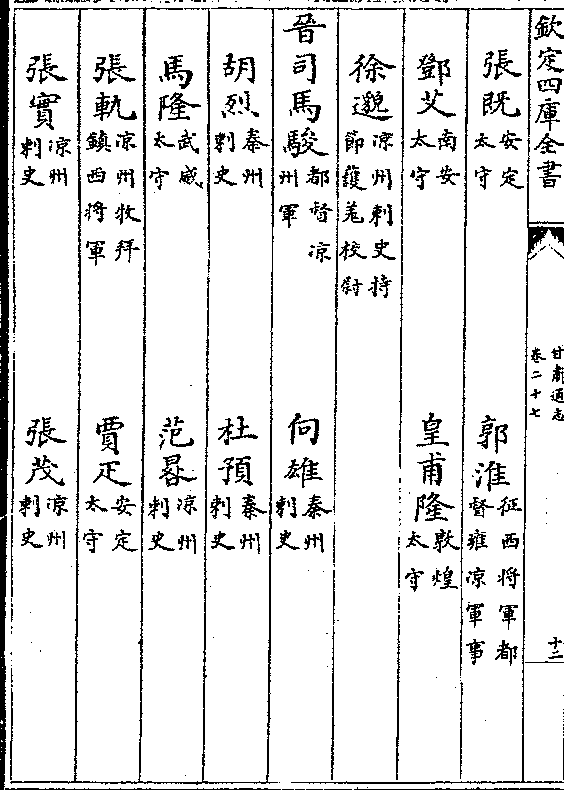 欽定四庫全書
甘肅通志
卷二十七
十二
張既 安定太守 郭淮 征西將軍都督雍涼軍事
鄧艾 南安太守 皇甫隆 敦煌太守
徐邈 涼州刺史持節護羌校尉
晉司馬駿 都督涼州軍 向雄 秦州刺史
胡烈 秦州刺史 杜預 秦州刺史
馬隆 武威太守 范晷 涼州刺史
張軌 涼州牧拜鎮西將軍 賈疋 安定太守
張實 涼州刺史 張茂 涼州刺史